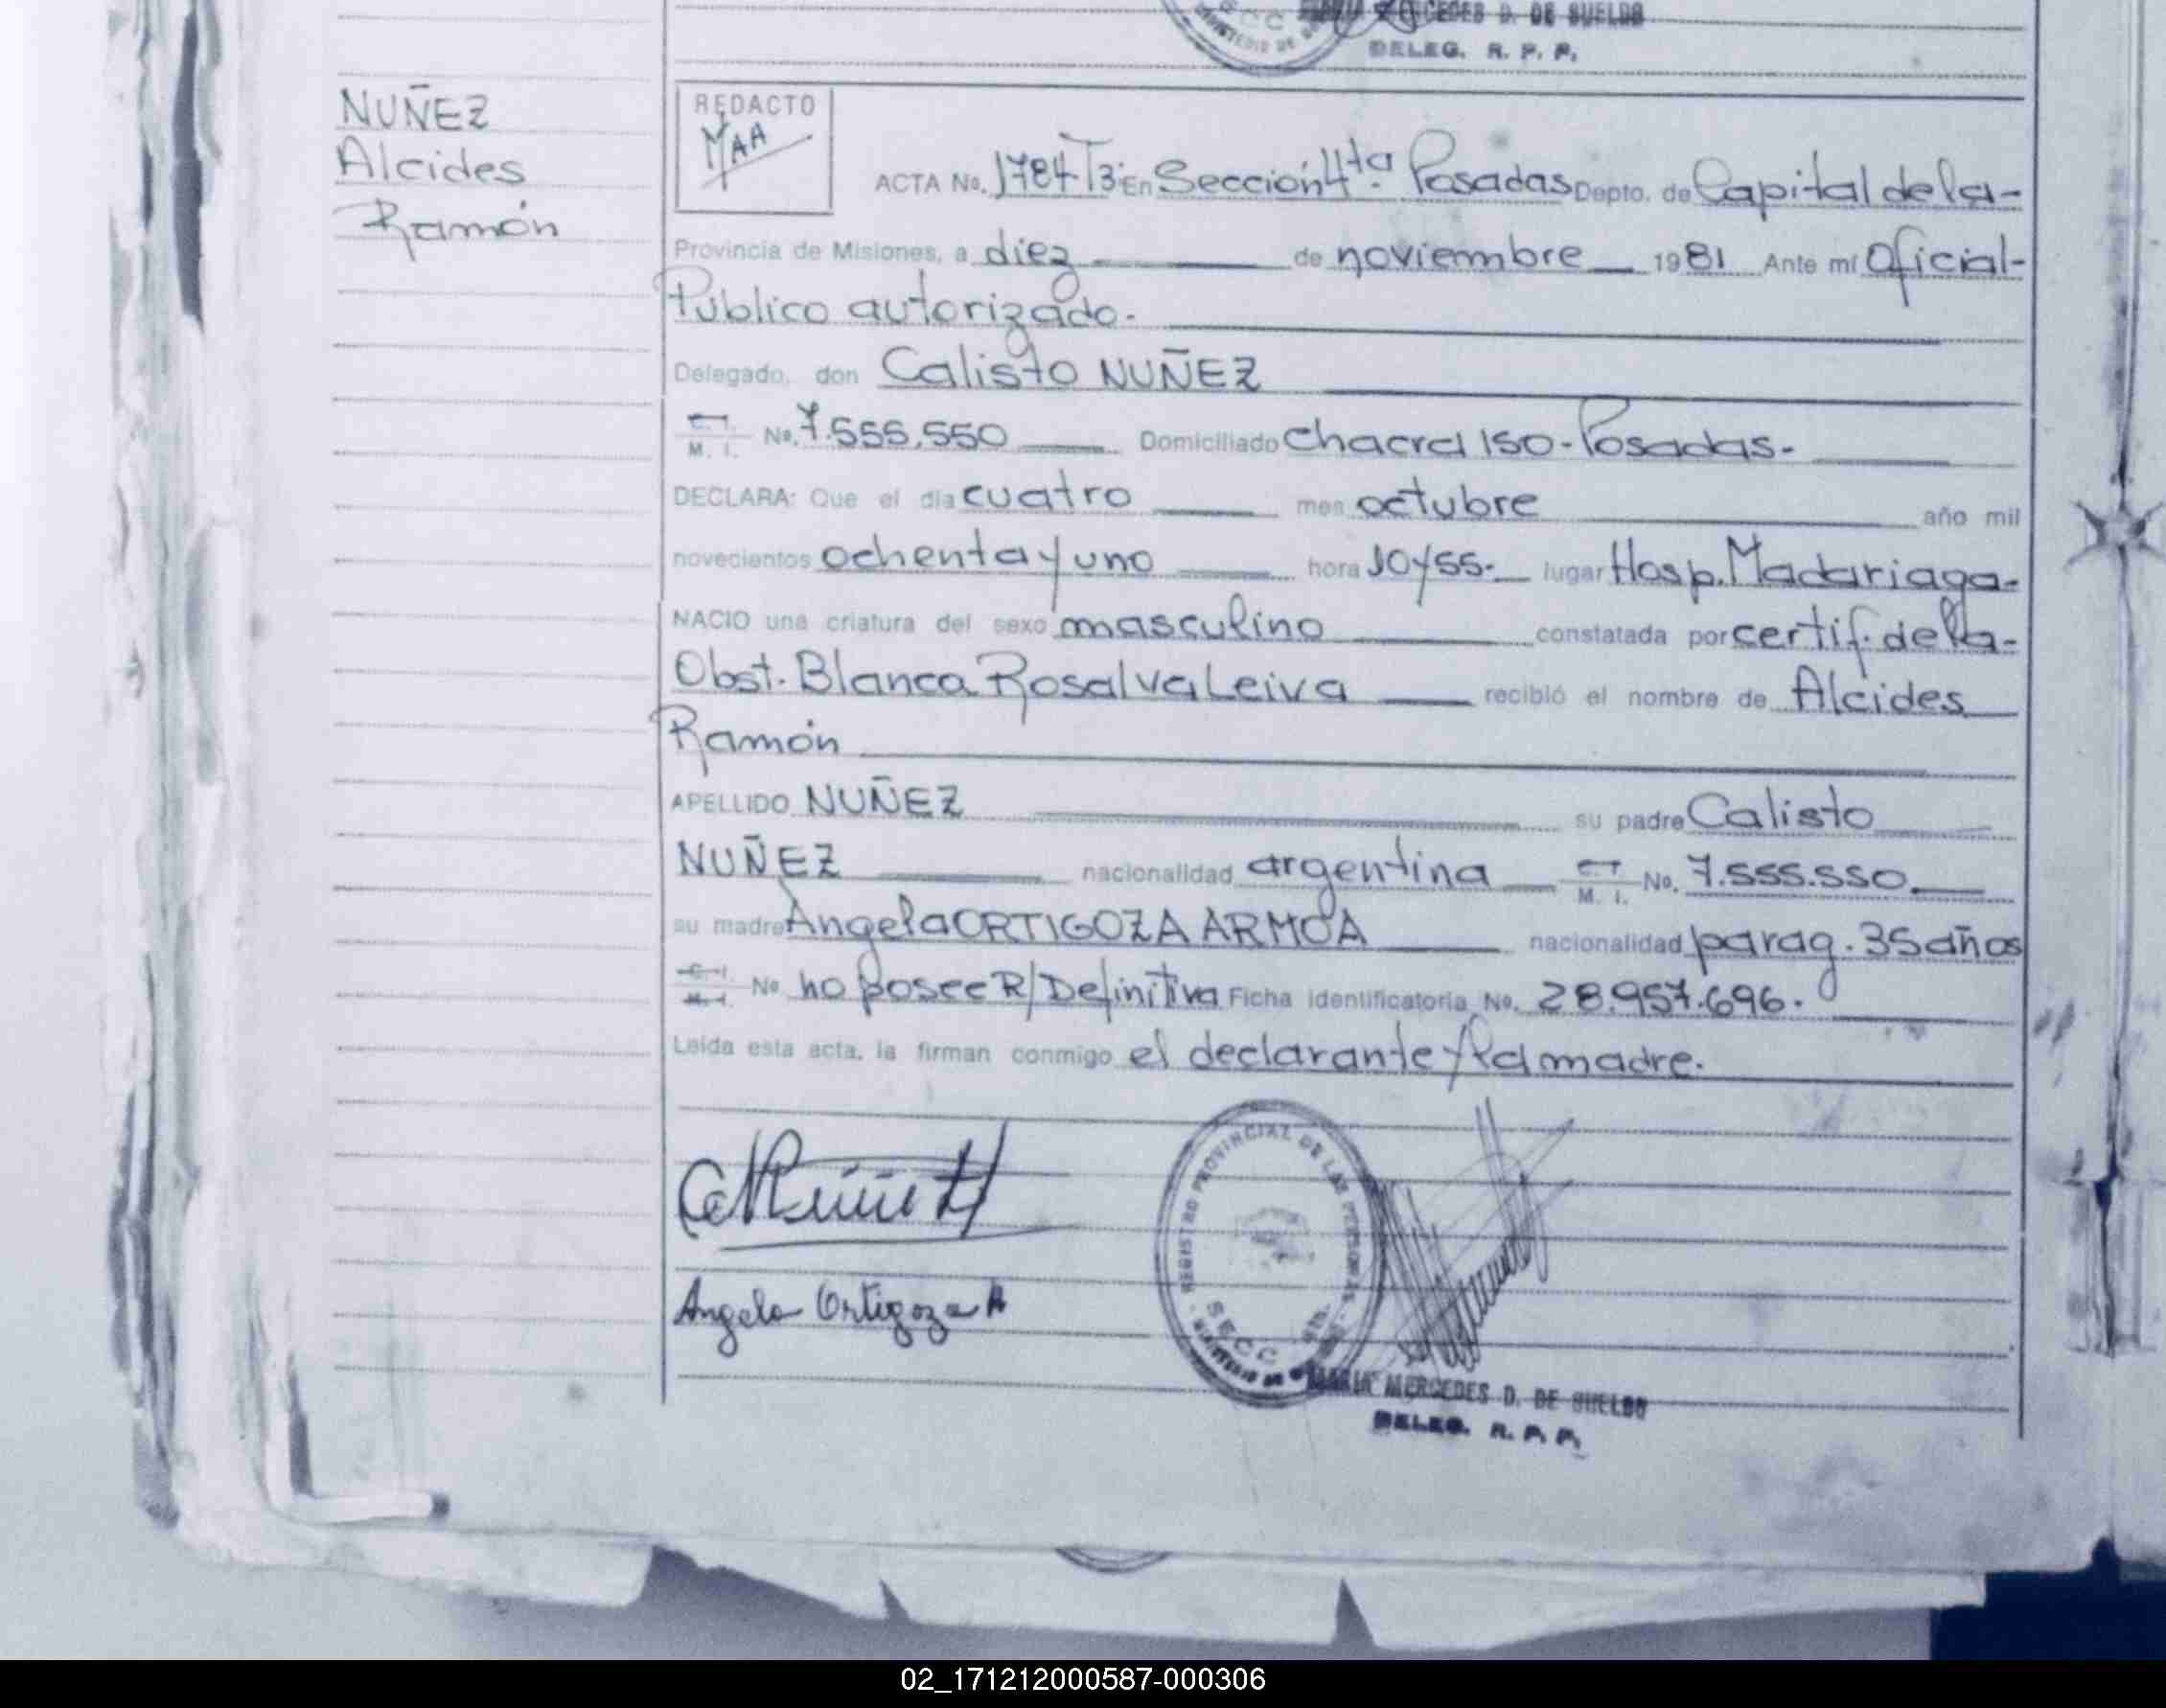 MARIA MERCEDES D. DE SUELDO
DELEG. R. P. P.
NUÑEZ
Alcides
Ramón
REDACTO
MAA
ACTA No. 1784 T3: En Sección 4ta. Posadas Depto. de Capital de la-
Provincia de Misiones, a diez de noviembre 1981 Ante mí Oficial-
Público autorizado.-
Delegado, don Calisto NUÑEZ
C. I. M. I. No. 7.555.550 Domiciliado Chacra 150-Posadas.-
DECLARA: Que el día cuatro mes octubre año mil
novecientos ochenta y uno hora 10y55.- lugar Hosp. Madariaga-
NACIO una criatura del sexo masculino constatada por certif. de la-
Obst. Blanca Rosalva Leiva recibió el nombre de Alcides
Ramón
APELLIDO NUÑEZ su padre Calisto
NUÑEZ nacionalidad argentina C. I. M. I. No. 7.555.550.
su madre Angela ORTIGOZA ARMOA nacionalidad parag. 35 años
C. I. M. I. No no posee R/Definitiva Ficha identificatoria No. 28.957.696.
Leída esta acta, la firman conmigo el declarante y la madre.
REGISTRO PROVINCIAL DE LAS PERSONAS
SECC
Angela Ortigoza A
MARIA MERCEDES D. DE SUELDO
DELEG. R. P. P.
02_171212000587-000306